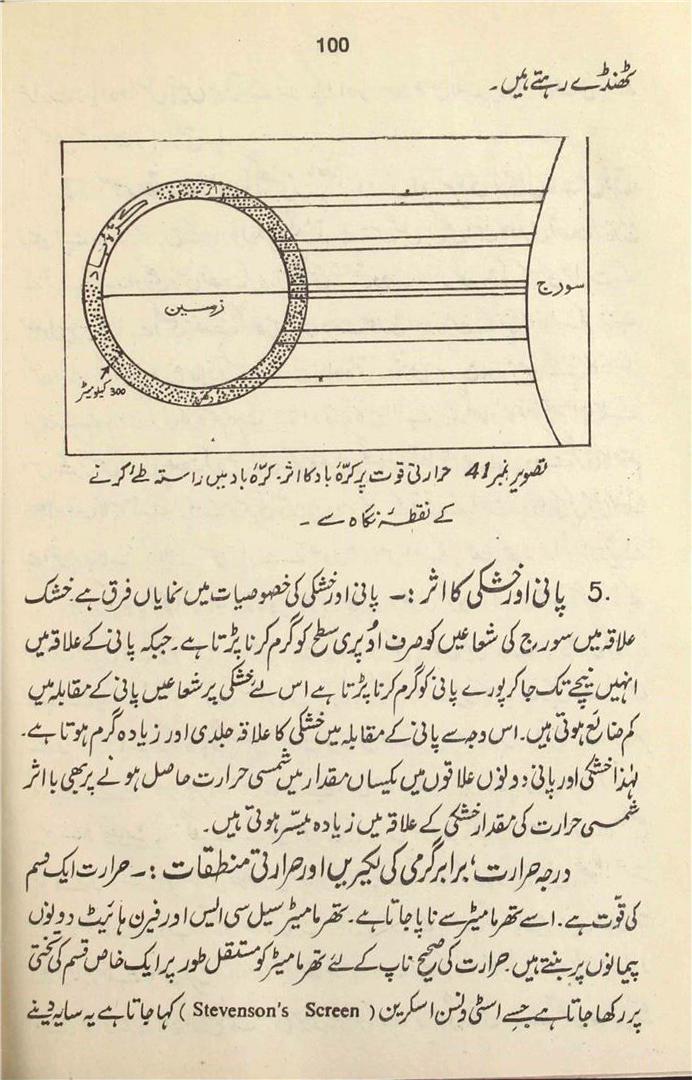 100
ٹھنڈے رہتے ہیں۔
کرّہ باد
اثر
سورج
زمین
300 کیلومیٹر
تصویر نمبر 41 حرارتی قوت پر کرّہ باد کا اثر۔ کرّہ باد میں راستہ طے کرنے
کے نقطۂ نگاہ سے۔
5. پانی اور خشکی کا اثر :۔ پانی اور خشکی کی خصوصیات میں نمایاں فرق ہے۔ خشک
علاقہ میں سورج کی شعاعیں کو صرف اوُپری سطح کو گرم کرنا پڑتا ہے۔ جبکہ پانی کے علاقہ میں
انہیں نیچے تک جاکر پورے پانی کو گرم کرنا پڑتا ہے اس لئے خشکی پر شعاعیں پانی کے مقابلہ میں
کم ضائع ہوتی ہیں۔ اس وجہ سے پانی کے مقابلہ میں خشکی کا علاقہ جلدی اور زیادہ گرم ہوتا ہے۔
لہٰذا خشکی اور پانی دونوں علاقوں میں یکساں مقدار میں شمسی حرارت حاصل ہونے پر بھی با اثر
شمسی حرارت کی مقدار خشکی کے علاقہ میں زیادہ میسّر ہوتی ہیں۔
درجہ حرارت، برابر گرمی کی لکیریں اور حرارتی منطقات :۔ حرارت ایک قسم
کی قوّت ہے۔ اسے تھرمامیٹر سے ناپا جاتا ہے۔ تھرمامیٹر سیل سی الیس اور فیرن ہائیٹ دونوں
پیمانوں پر بنتے ہیں۔ حرارت کی صحیح ناپ کے لئے تھرمامیٹر کو مستقل طور پر ایک خاص قسم کی تختی
پر رکھا جاتا ہے جسے اسٹی ونسن اسکرین ( Stevenson's Screen ) کہا جاتا ہے یہ سایہ دینے